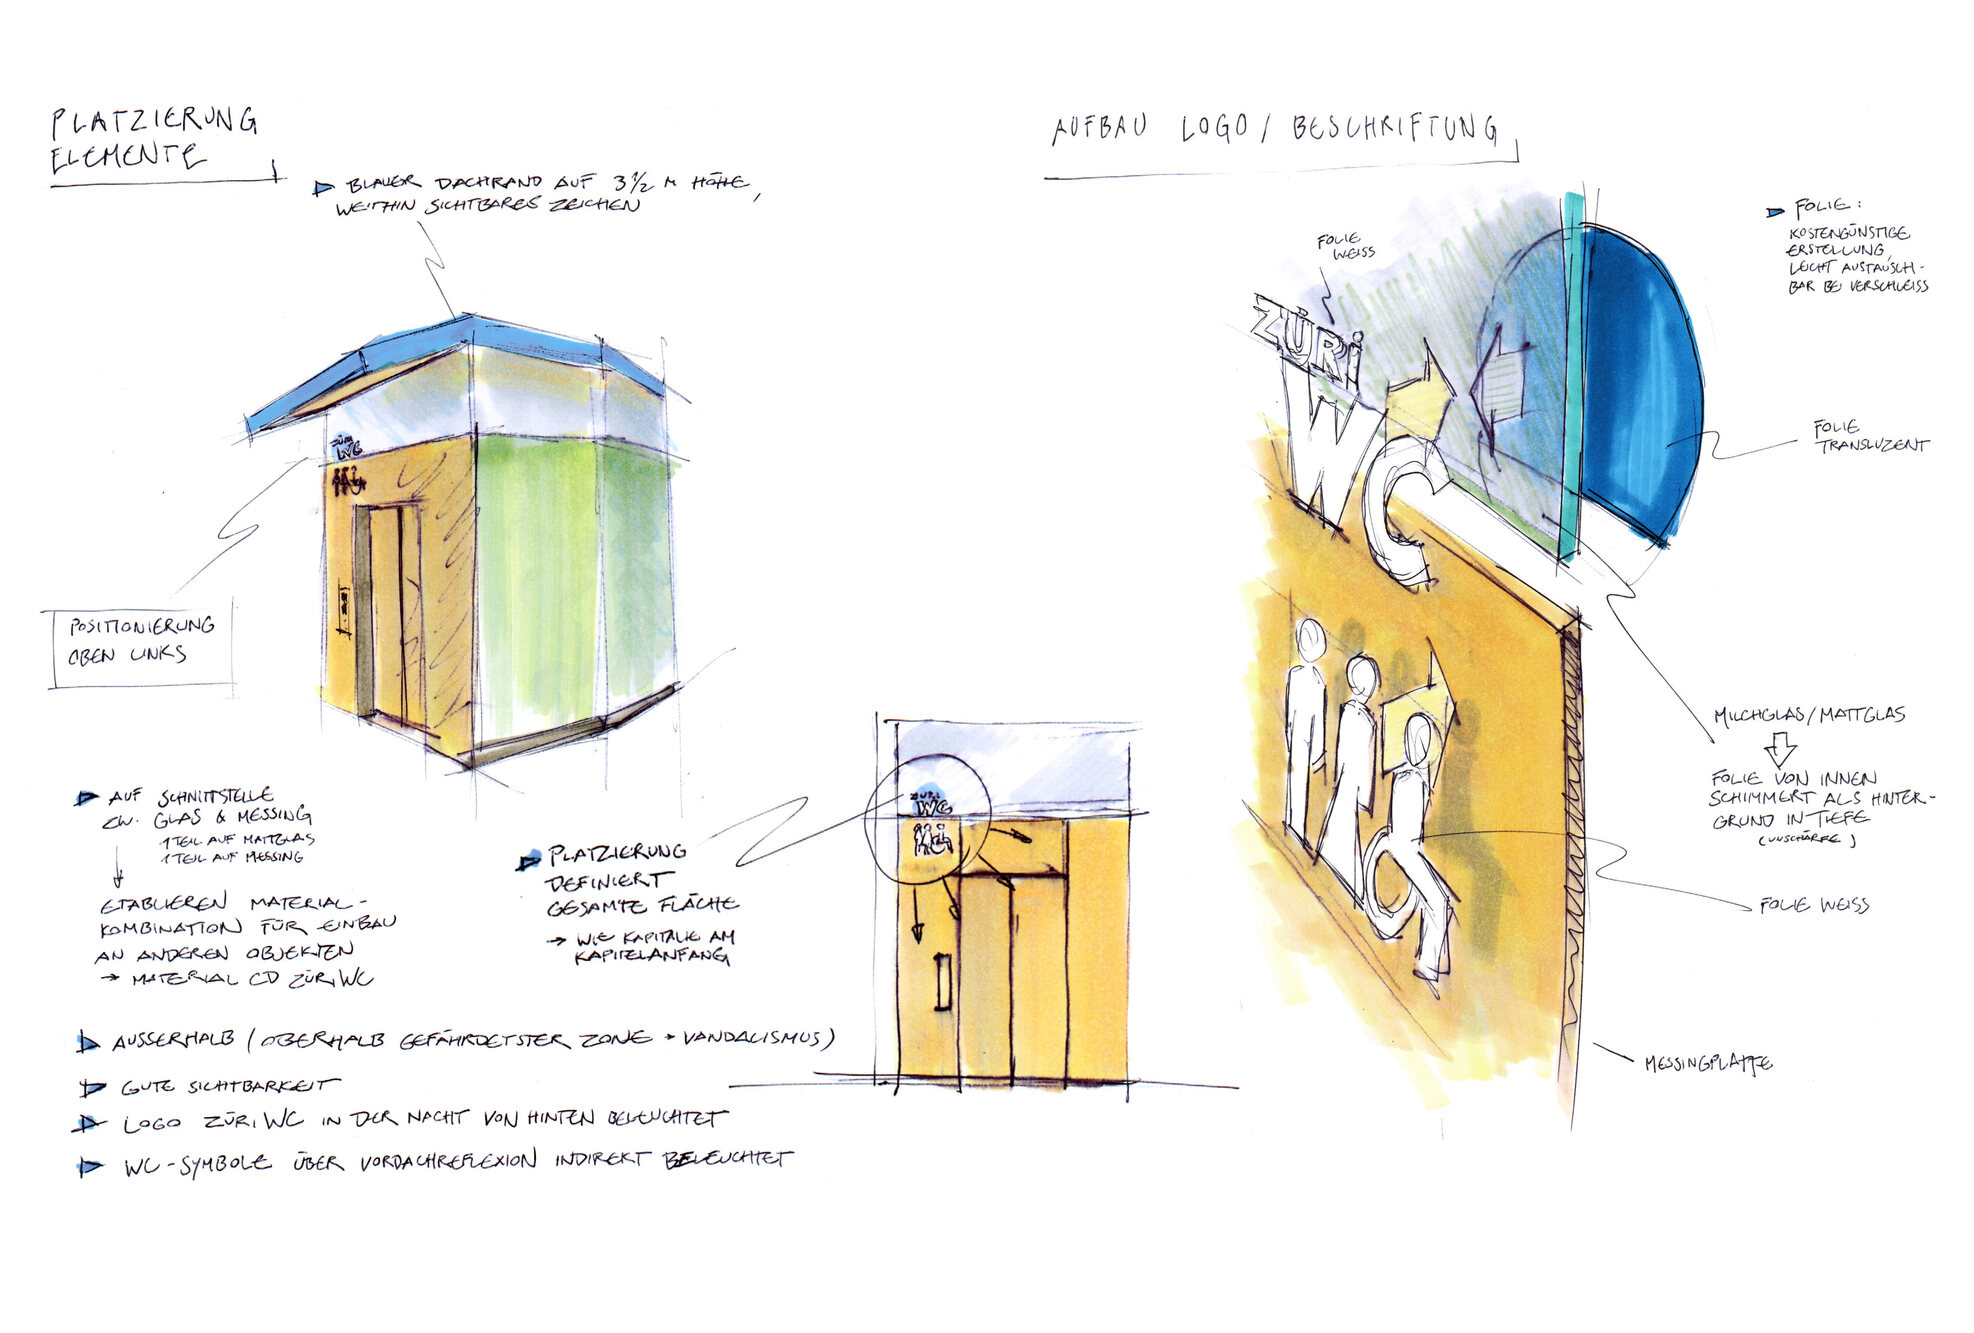 PLATZIERUNG
ELEMENTE
BLAUER DACHRAND AUF 3 1/2 M HÖHE,
WEITHIN SICHTBARES ZEICHEN
ZÜRI
WC
POSITIONIERUNG
OBEN LINKS
AUF SCHNITTSTELLE
ZW. GLAS & MESSING
1 TEIL AUF MATTGLAS
1 TEIL AUF MESSING
ETABLIEREN MATERIAL-
KOMBINATION FÜR EINBAU
AN ANDEREN OBJEKTEN
→ MATERIAL CD ZÜRI WC
PLATZIERUNG
DEFINIERT
GESAMTE FLÄCHE
→ WIE KAPITALE AM
KAPITELANFANG
ZÜRI
WC
AUSSERHALB (OBERHALB GEFÄHRDETSTER ZONE → VANDALISMUS)
GUTE SICHTBARKEIT
LOGO ZÜRI WC IN DER NACHT VON HINTEN BELEUCHTET
WC-SYMBOLE ÜBER VORDACHREFLEXION INDIREKT BELEUCHTET
AUFBAU LOGO / BESCHRIFTUNG
FOLIE
WEISS
ZÜRI
WC
FOLIE:
KOSTENGÜNSTIGE
ERSTELLUNG,
LEICHT AUSTAUSCH-
BAR BEI VERSCHLEISS
FOLIE
TRANSLUZENT
MILCHGLAS/MATTGLAS
FOLIE VON INNEN
SCHIMMERT ALS HINTER-
GRUND IN TIEFE
(UNSCHÄRFE)
FOLIE WEISS
MESSINGPLATTE